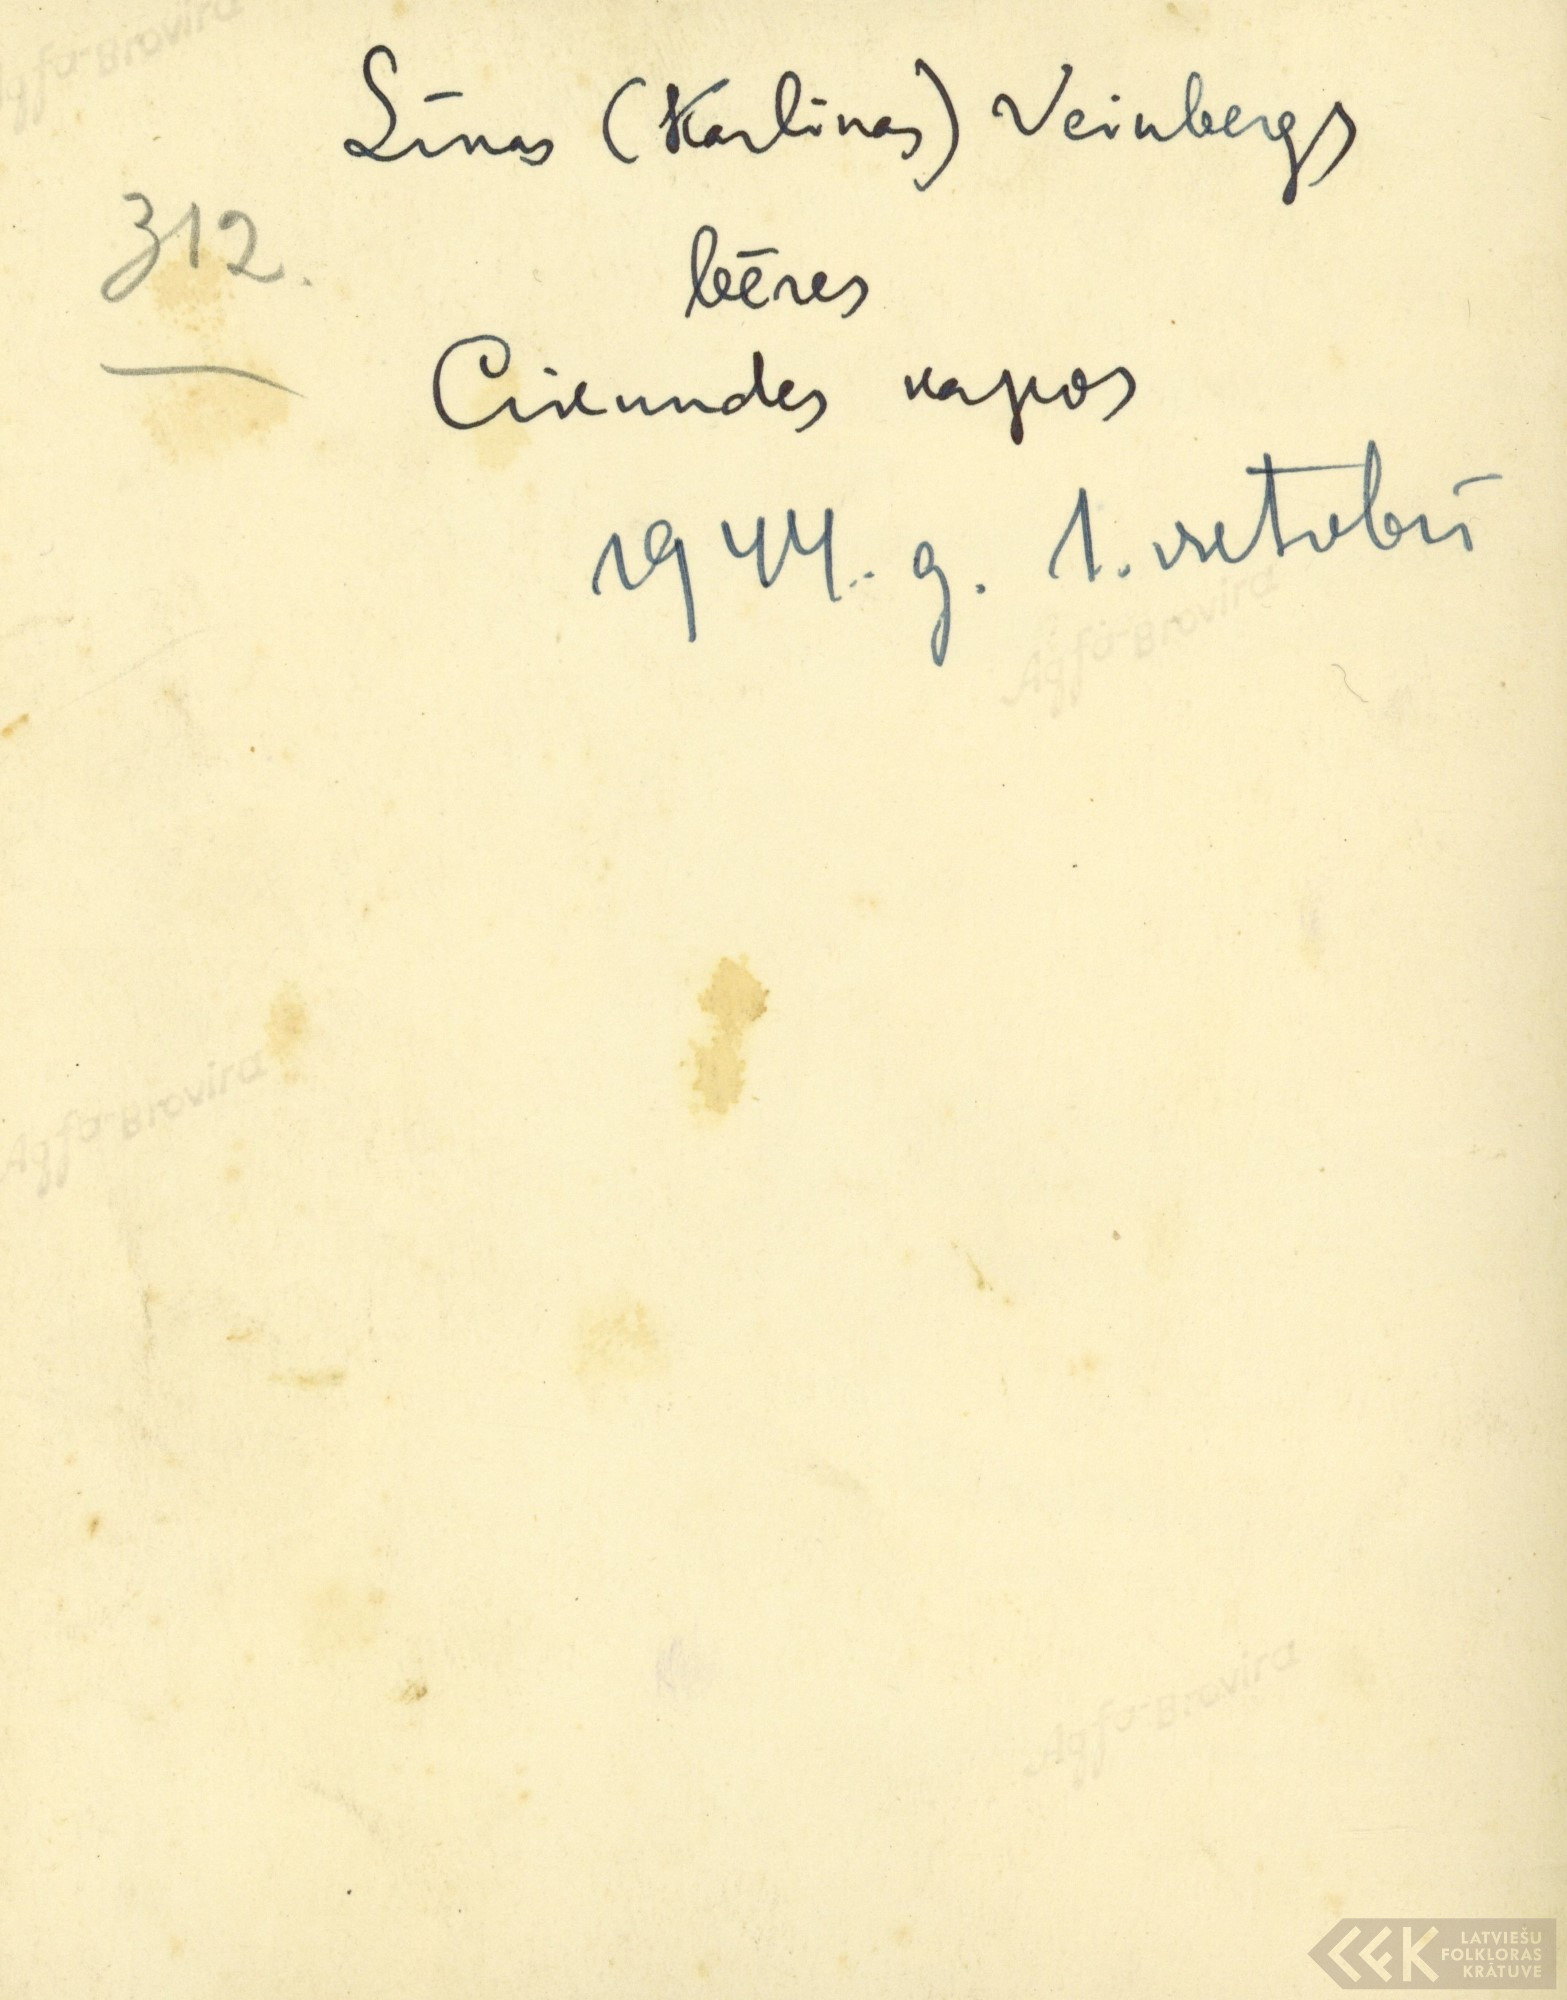 Līnas (Karlīnas) Veinbergs
312.
bēres
Cirkundes kapos
1944. g. 1. oktobrī
Agfa-Brovira
Agfa-Brovira
Agfa-Brovira
Agfa-Brovira
LATVIEŠU
FOLKLORAS
KRĀTUVE